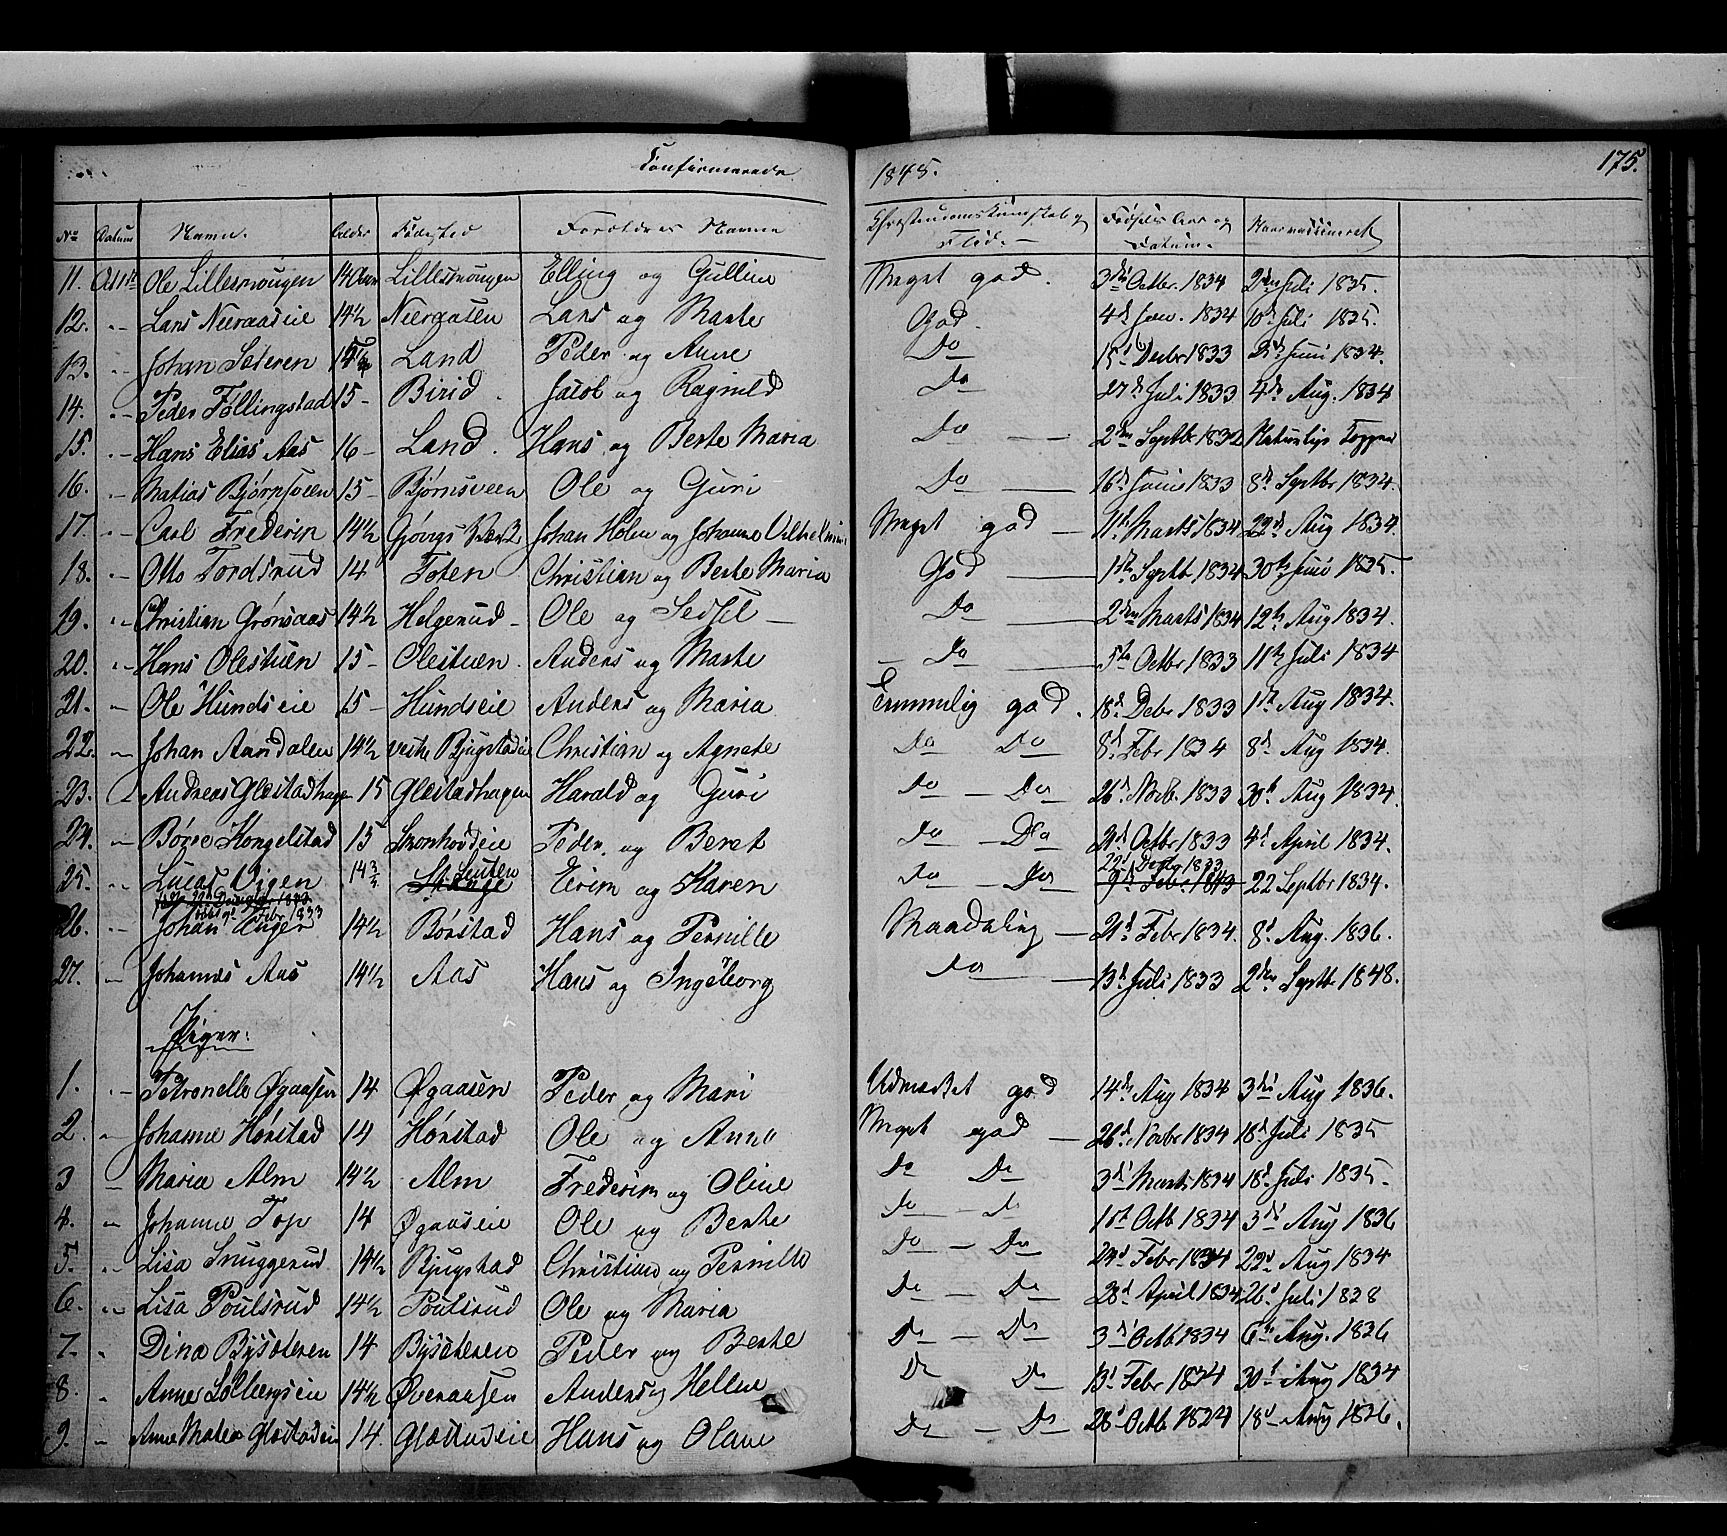 Confirmerede 1848. 175.
No Datum Navn. Alder Fødested Forældres Navne Christendomskundskab og Flid. Fødsels Aar og Datum. Naarvaccineret
11. Ole Lillesvougen 14 Lillesvougen Elling og Gulline Meget god. 3die Octbr. 1834 2den Juli 1835.
12. Lars Neeraaseie 14½ Neeraasen Lars og Marte God. 4de Jan. 1834 10de Juli 1835.
13. Johan Sæteren Land Peder og Anne Do 15d Decbr 1833 Juni 1834.
14. Peder Føllingstad 15 Birid Jacob og Ragnild Do 27de Juli 1833 4de Aug. 1834
15. Hans Elias Aas 16 Land. Hans og Berte Maria Do 2den Septbr 1832 Naturlige Kopper
16. Matias Bjørnsveen 15 Bjørnsveen Ole og Guri Do 16de Juni 1833 8de Septbr 1834.
17. Carl Frederik 14½ Gjøvigs Johan Holm og Johanne Vilhelmine Meget god 11te Marts 1834 22de Aug 1834.
18. Otto Tordsrud 14 Toten Christian og Berte Maria God 1ste Septbr 1834 30te Juni 1835.
19. Christian Grønaas 14½ Helgerud Ole og Sedsel Do 2den Marts 1834 12te Aug 1834.
20. Hans Olestuen 15 Olestuen Anders og Marte Do 5te Octbr 1833 11te Juli 1834
21. Ole Hundseie 15 Hundseie Anders og Maria Temmelig god. 18de Debr 1833 1ste Aug 1834.
22. Johan Aandalen 14½ vestre Bjugstadeie Christian og Agnete Do Do 8de Febr 1834 8de Aug 1834.
23. Andreas Glæstadhagen 15 Glæstadhagen Harald og Guri Do Do 26de Novb. 1833 30te Aug 1834.
24. Børre Kongelstad 15 Skonhovdeie Peder og Beret Do Do 21de Octbr 1833 4de April 1834.
25. Lucas Vigen 14¾ Stange Leuten Eirik og Karen Do Do 22de Decbr 1833 9de Febr. 1833 22 Septbr 1834.
26. Johan Unger 14½ Børstad Hans og Pernille Maadelig 21de Febr 1834. 8de Aug. 1836.
27. Johannes Aas 14½ Aas Hans og Ingeborg Do 13de Juli 1833 2den Septbr 1848.
Piger:
1. Petronelle Øgaasen 14 Øgaasen Peder og Mari Udmærket god 14de Aug 1834 3die Aug 1836.
2. Johanne Hørstad 14 Hørstad Ole og Anne Meget god 26de Novbr 1834 18de Juli 1835
3 Maria Alm 14½ Alm Frederik og Oline Do Do 3die Marts 1834 18de Juli 1835.
4. Johanne Top 14 Øgaaseie Ole og Berte Do do Octb 1834 3die Aug 1836
5. Lisa Snuggerud 14½ Bjugstad Christian og Pernille Do Do 24de Febr 1834 22de Aug 1834
6. Lisa Poulsrud 14½ Poulsrud Ole og Maria Do Do 28de April 1834 26de Juli 1838
7. Dina Bysæteren 14 Bysæteren Peder og Berte Do Do 3die Octb 1834 6te Aug. 1836
8. Anne Solbergseie 14½ Øveraasen Anders og Hellene Do Do 13de Febr 1834 30te Aug 1834
9. Anne Maten Glæstadeie 14 Glæstadeie Hans og Olane Do Do 28de Octb 1834 18de Aug 1836.